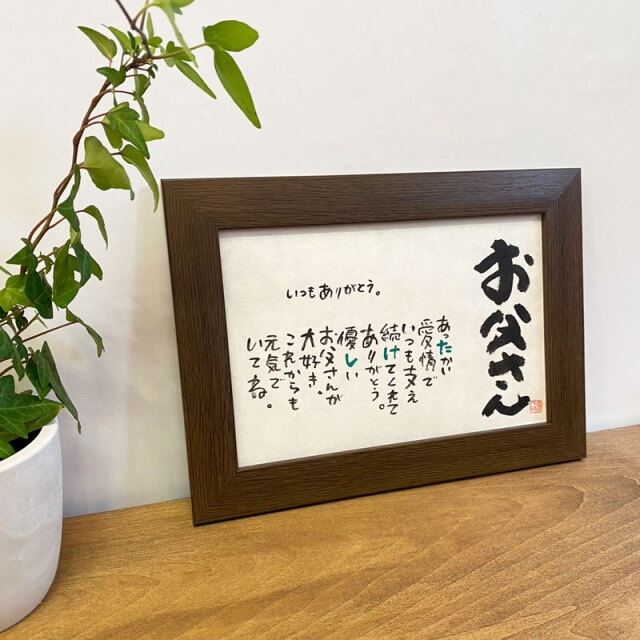 お父さん
いつもありがとう。
あったかい
愛情で
いつも支え
続けてくれて
ありがとう。
優しい
お父さんが
大好き。
これからも
元気で
いてね。